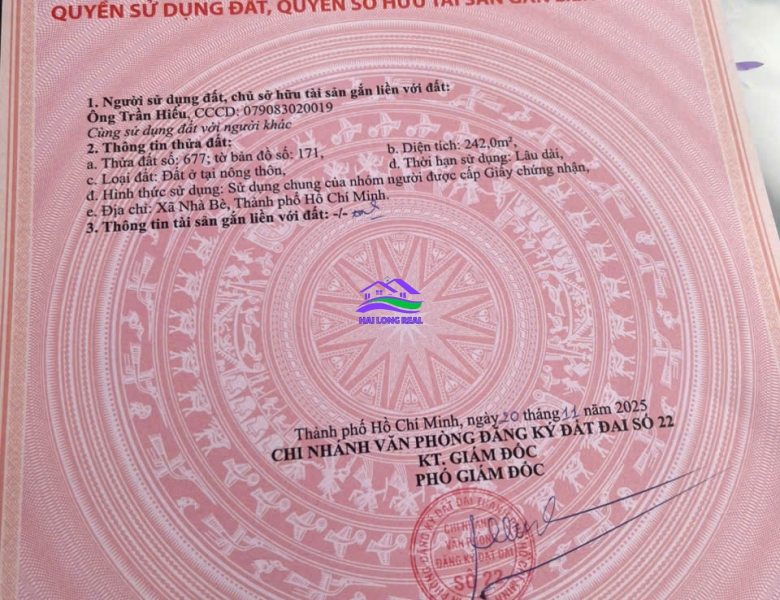 QUYỀN SỬ DỤNG ĐẤT, QUYỀN SỞ HỮU TÀI SẢN GẮN LIỀN
1. Người sử dụng đất, chủ sở hữu tài sản gắn liền với đất:
Ông Trần Hiếu, CCCD: 079083020019
Cùng sử dụng đất với người khác
2. Thông tin thửa đất:
a. Thửa đất số: 677; tờ bản đồ số: 171,
b. Diện tích: 242,0m²,
c. Loại đất: Đất ở tại nông thôn,
d. Thời hạn sử dụng: Lâu dài,
đ. Hình thức sử dụng: Sử dụng chung của nhóm người được cấp Giấy chứng nhận,
e. Địa chỉ: Xã Nhà Bè, Thành phố Hồ Chí Minh.
3. Thông tin tài sản gắn liền với đất: -/-
HAI LONG REAL
Thành phố Hồ Chí Minh, ngày 20 tháng 11 năm 2025
CHI NHÁNH VĂN PHÒNG ĐĂNG KÝ ĐẤT ĐAI SỐ 22
KT. GIÁM ĐỐC
PHÓ GIÁM ĐỐC
CHI NHÁNH
VĂN PHÒNG
ĐĂNG KÝ ĐẤT ĐAI
SỐ 22